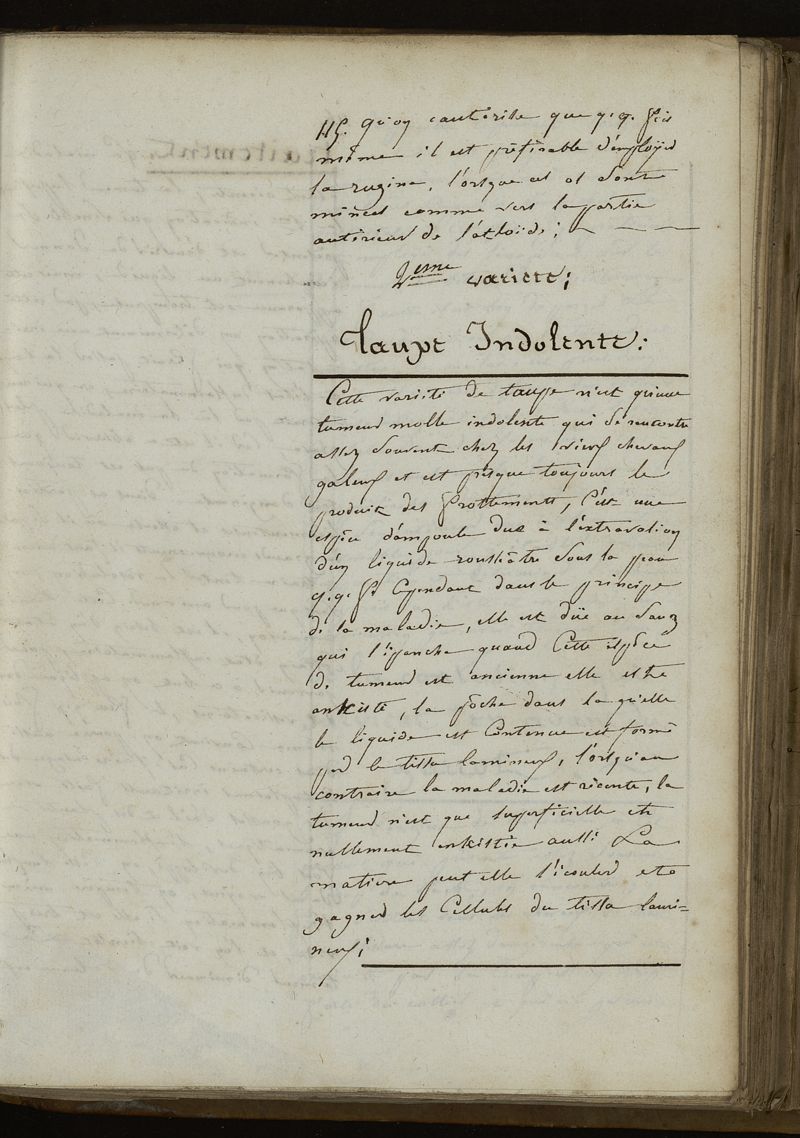 qu'on cautérise que q.q. fois
même il est préférable d'employer
la rugine, l'orsque cet os sont
minces comme vers la partie
antérieur de l'atloïde;
2eme variete;
Taupe Indolente:
Cette varieté de taupe n'est qu'une
tumeur molle indolente qui se rencontre
assez souvent chez les vieux chevaux
galeux et est presque toujours le
produit des frottements, C'est une
espèce d'ampoule due à l'extravation
d'un liquide roussâtre sous la peau
q.q. fs Cependant dans le principe
de la maladie, elle est düe au sang
qui s'épanche quand Cette espèce
de tumeur est ancienne elle est
enkisté, la poche dans la qu'elle
le liquide est Contenue est formé
par le tissu lamineux, l'orsqu'au
contraire la maladie est récente, la
tumeur n'est que superficielle et
nullement enkistée aussi La
matiere peut elle s'écouler et
gagner les Cellules du tissu lami=
neux;